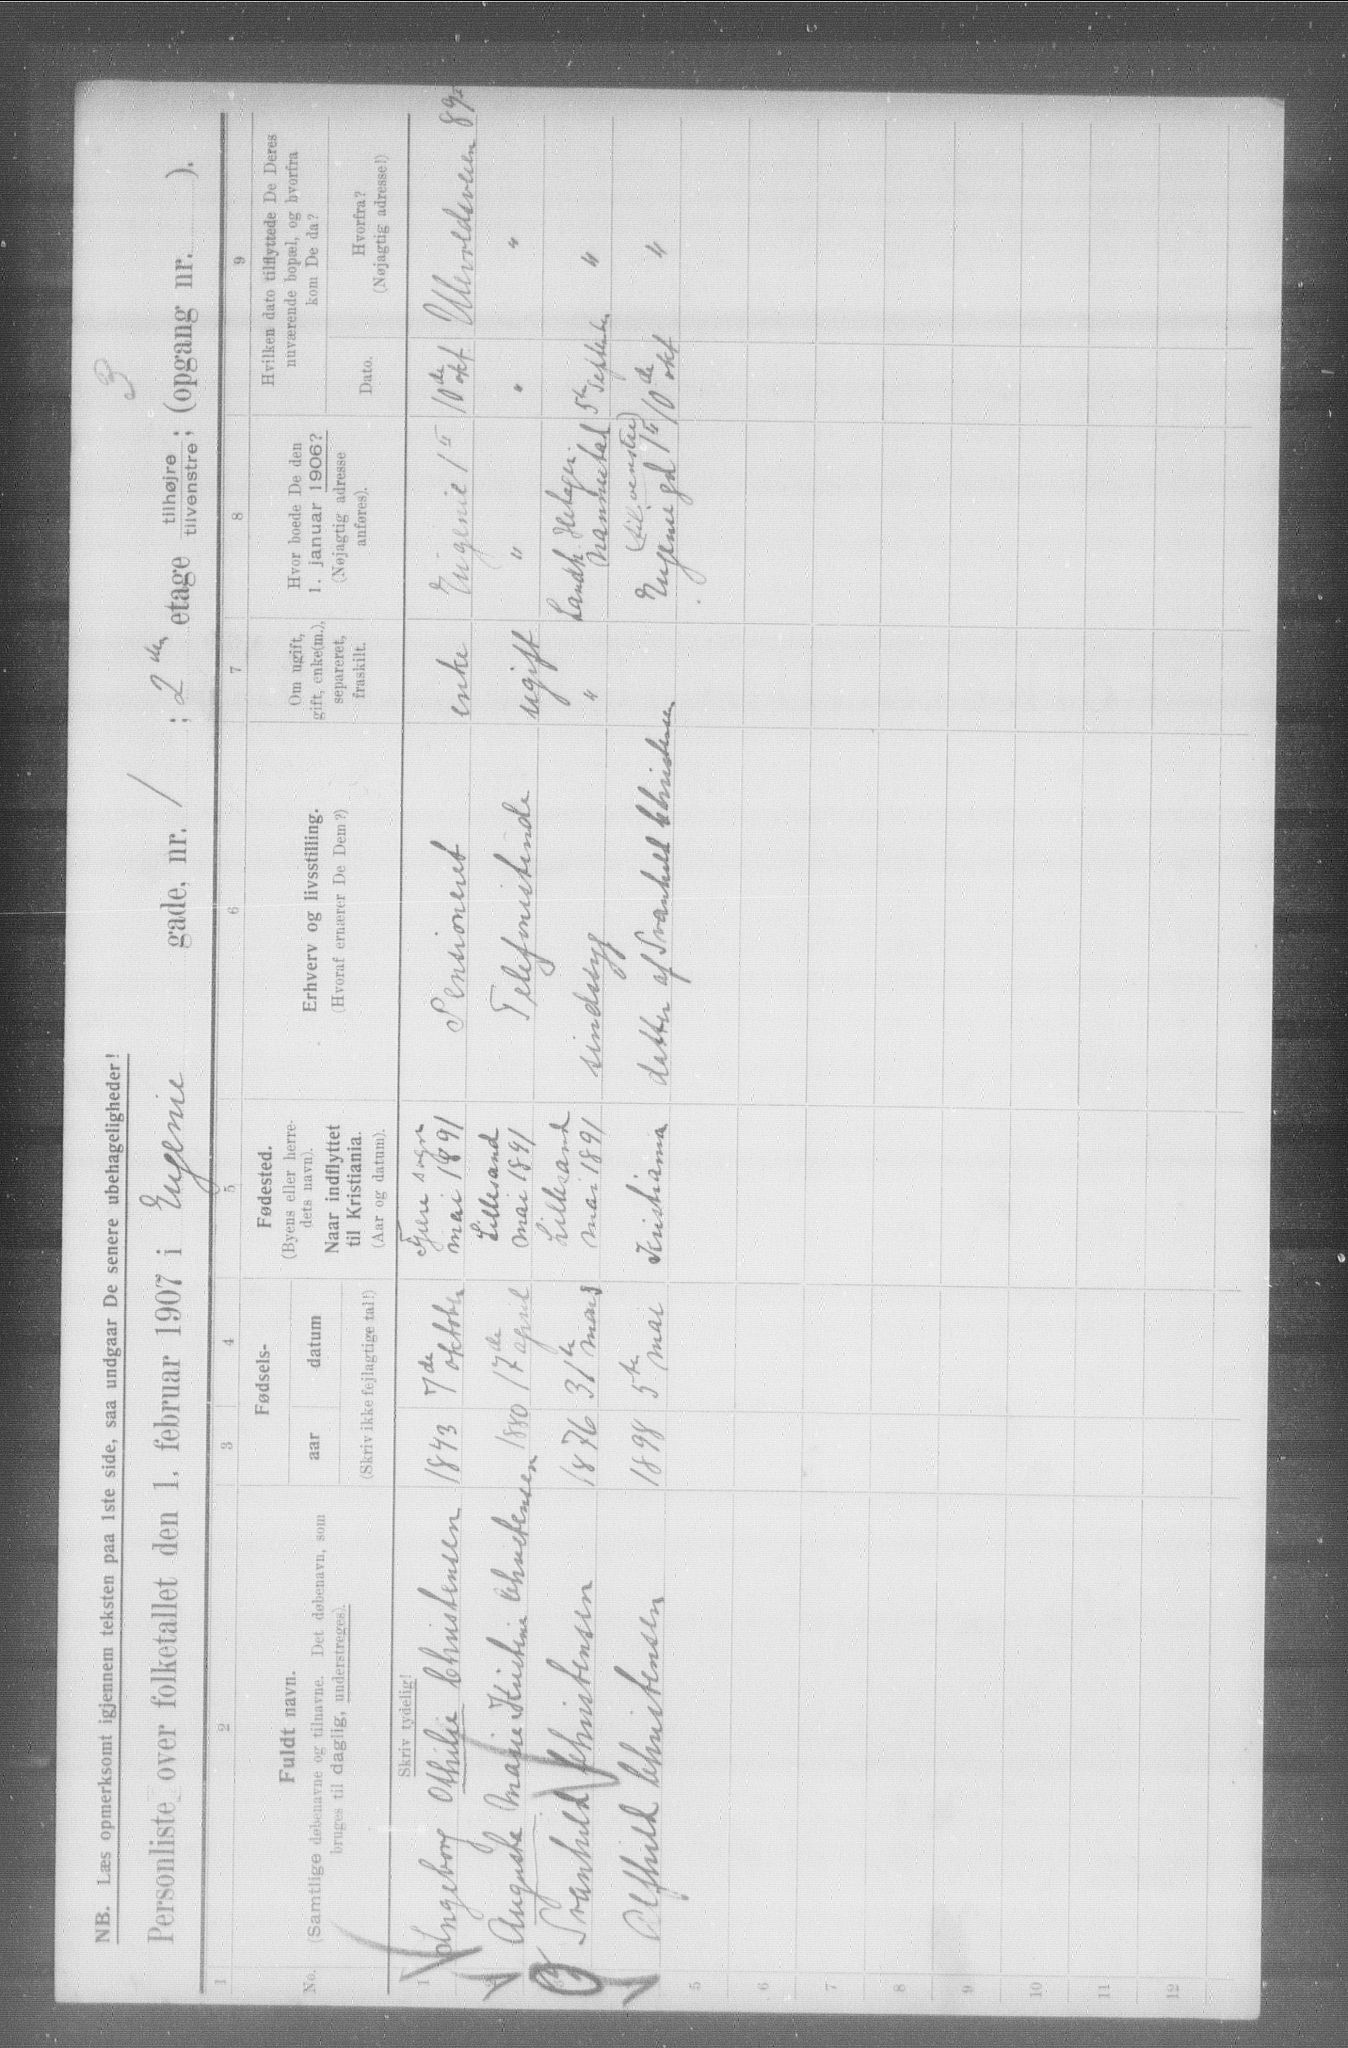 3
NB. Læs opmerksomt igjennem teksten paa 1ste side, saa undgaar De senere ubehageligheder!
Personliste over folketallet den 1. februar 1907 i Eugenie gade, nr. 1 ; 2den etage tilhøjre tilvenstre; (opgang nr. ).
1 2 3 4 5 6 7 8 9
No.
Fuldt navn.
(Samtlige døbenavne og tilnavne. Det døbenavn, som
bruges til daglig, understreges).
Fødsels-
aar datum
(Skriv ikke fejlagtige tal!)
Fødested.
(Byens eller herre-
dets navn).
Naar indflyttet
til Kristiania.
(Aar og datum).
Erhverv og livsstilling.
(Hvoraf ernærer De Dem?)
Om ugift,
gift, enke(m.),
separeret,
fraskilt.
Hvor boede De den
1. januar 1906?
(Nøjagtig adresse
anføres).
Hvilken dato tilflyttede De Deres
nuværende bopæl, og hvorfra
kom De da?
Dato.
Hvorfra?
(Nøjagtig adresse!)
Skriv tydelig!
1 Ingeborg Othilie Christensen 1843 7de oktober Fjære sogn mai 1891 Pensioneret enke Eugenie 1 10de okt Ullevoldsveien 89
2 Augusta Marie Kristine Christensen 1880 17de april Lillesand mai 1891 Telefonistinde ugift " " "
3 Svanhild Christensen 1876 31te mars Lillesand mai 1891 sindssyg " Landh. 5te September "
4 Alfhild Christensen 1898 5te mai Kristiania datter af Svanhild Christensen (til venstre) Eugeniegd 1 10de okt "
5
6
7
8
9
10
11
12